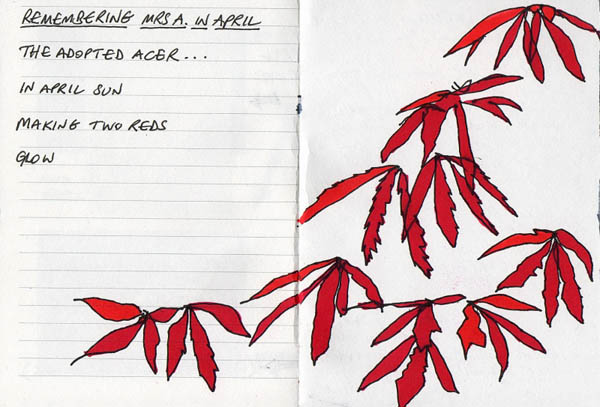 REMEMBERING MRS A. IN APRIL
THE ADOPTED ACER...
IN APRIL SUN
MAKING TWO REDS
GLOW